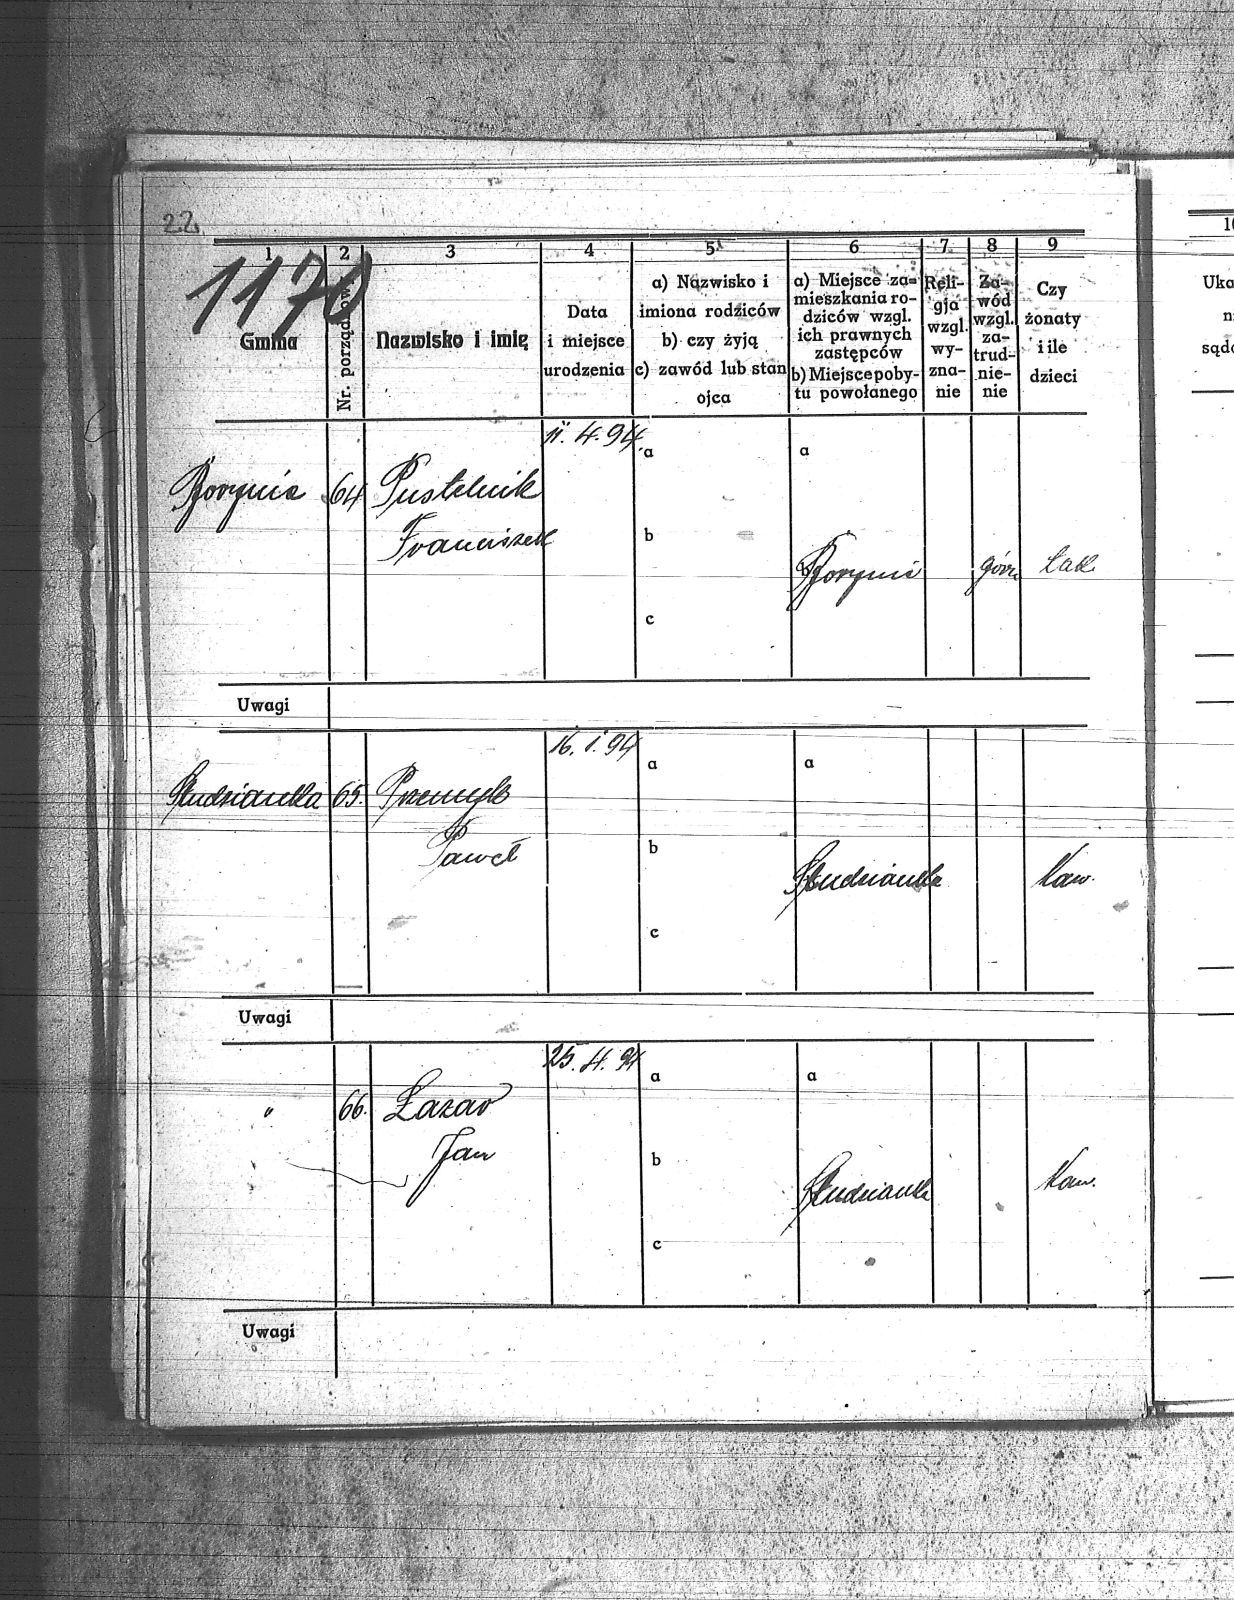 22.
1170
1 2 3 4 5 6 7 8 9
Gmina
Nr. porządkow.
Nazwisko i imię
Data
i miejsce
urodzenia
a) Nazwisko i
imiona rodziców
b) czy żyją
c) zawód lub stan
ojca
a) Miejsce za-
mieszkania ro-
dziców wzgl.
ich prawnych
zastępców
b) Miejsce poby-
tu powołanego
Reli-
gja
wzgl.
wy-
zna-
nie
Za-
wód
wzgl.
za-
trud-
nie-
nie
Czy
żonaty
i ile
dzieci
10
Uka
11. 4. 94
Borynia 64 Pustelnik
Franciszek
a
b
c
a
Borynia górn.
Uwagi
16. 1. 94
Studzionka 65. Przemyk
Paweł
a
b
c
a
Studzionka Kaw.
Uwagi
25. 4. 94
" 66. Łazar
Jan
a
b
c
a
Studzionka Kaw.
Uwagi